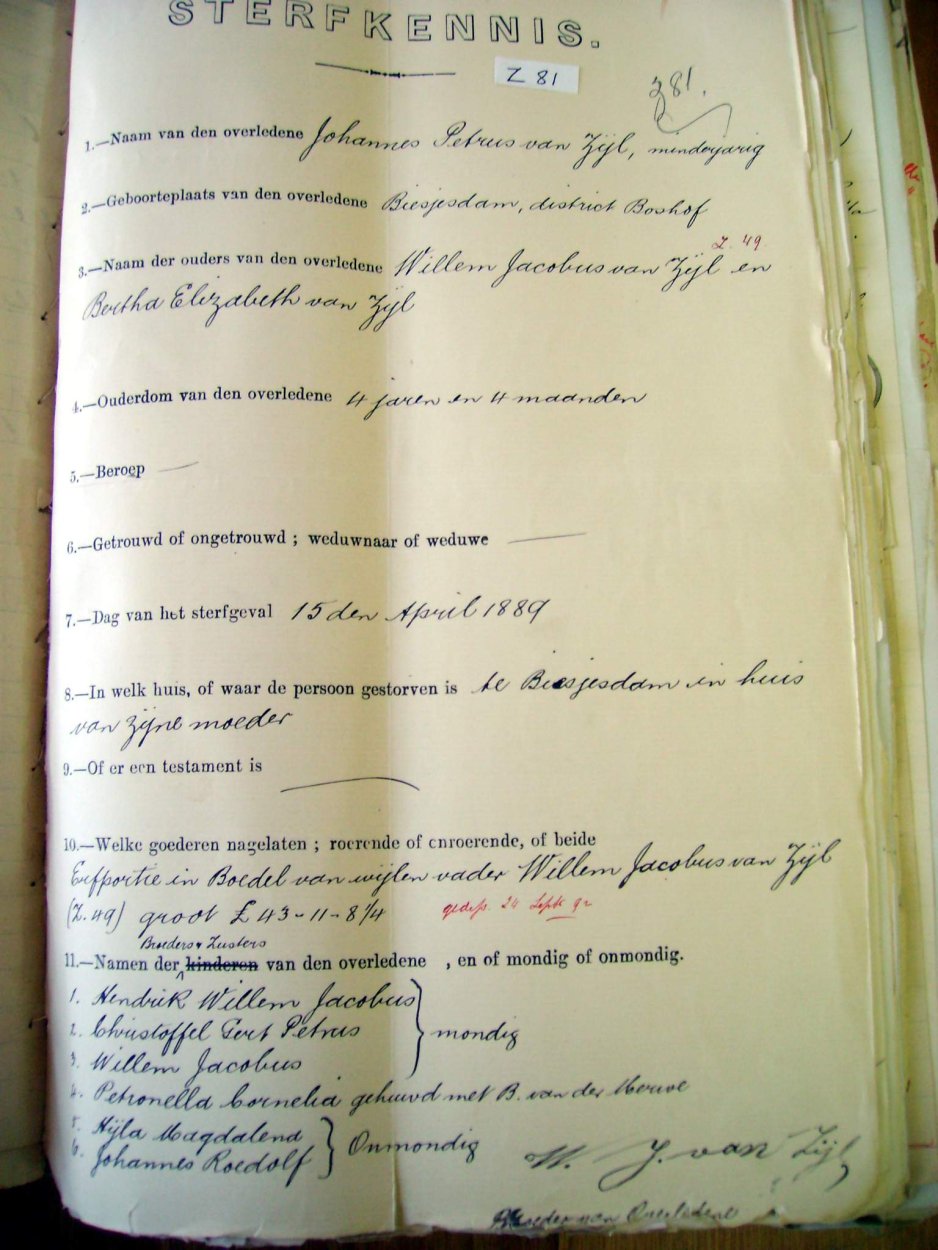 STERFKENNIS.
Z 81
Z 81.
1.—Naam van den overledene Johannes Petrus van Zijl, minderjarig
2.—Geboorteplaats van den overledene Biesjesdam, district Boshof
Z. 49
3.—Naam der ouders van den overledene Willem Jacobus van Zijl en
Bertha Elizabeth van Zijl
4.—Ouderdom van den overledene 4 jaren en 4 maanden
5.—Beroep —
6.—Getrouwd of ongetrouwd ; weduwnaar of weduwe —
7.—Dag van het sterfgeval 15 den April 1889
8.—In welk huis, of waar de persoon gestorven is te Biesjesdam in huis
van zijne moeder
9.—Of er een testament is —
10.—Welke goederen nagelaten ; roerende of onroerende, of beide
Erfportie in Boedel van wijlen vader Willem Jacobus van Zijl
(Z. 49) groot £ 43-11-8¼ 24 Sept 92
Broeders & Zusters
11.—Namen der kinderen van den overledene , en of mondig of onmondig.
1. Hendrik Willem Jacobus
2. Christoffel Gert Petrus mondig
3. Willem Jacobus
4. Petronella Cornelia gehuwd met B. van der Merwe
5. Hijla Magdalena
6. Johannes Roedolf Onmondig
W. J. van Zijl
van Overledene